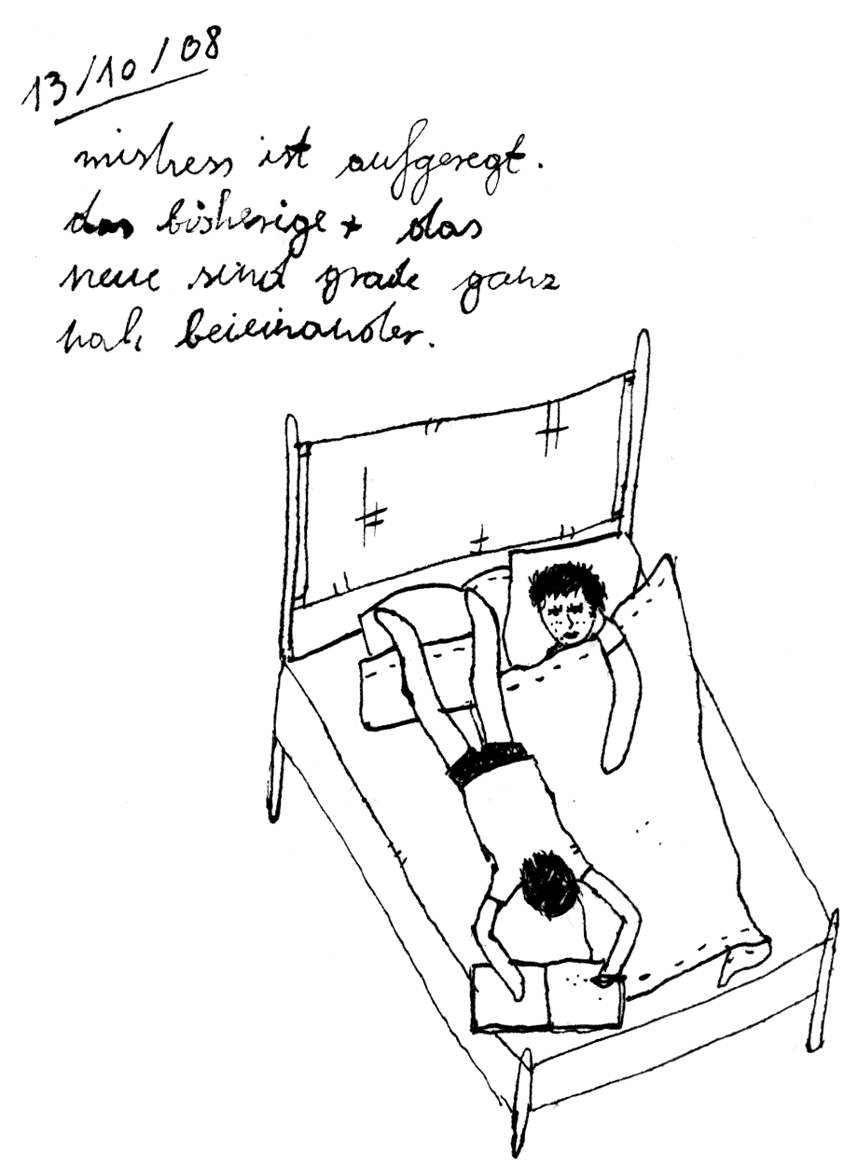 13/10/08
mistress ist aufgeregt.
das bisherige + das
neue sind grade ganz
nah beieinander.